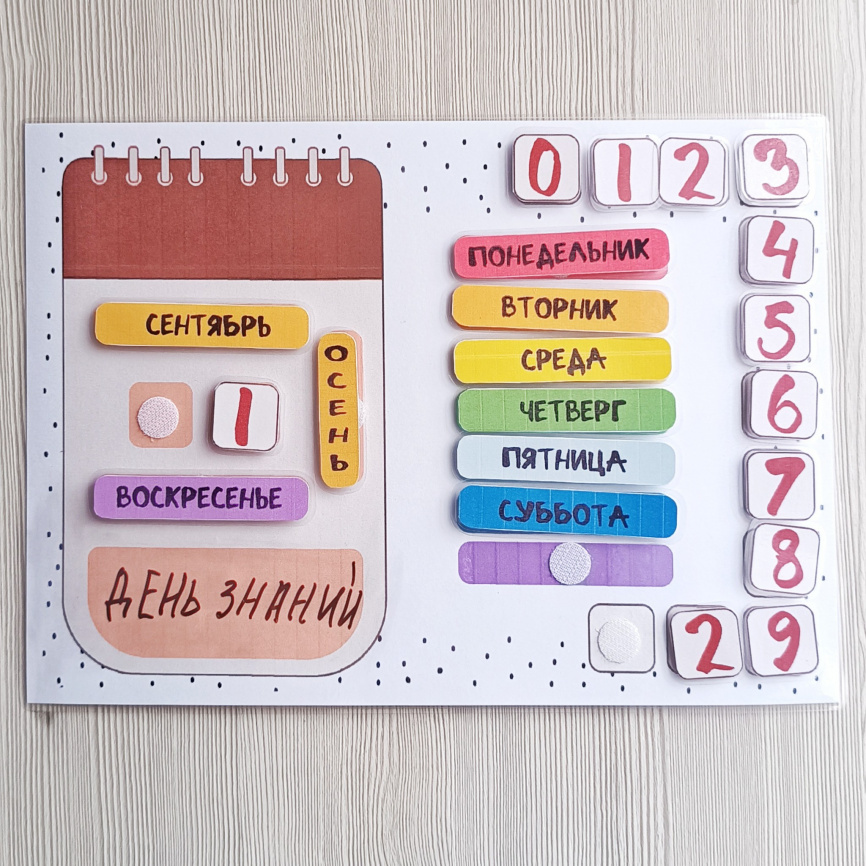 СЕНТЯБРЬ
1
ОСЕНЬ
ВОСКРЕСЕНЬЕ
ДЕНЬ ЗНАНИЙ!
0 1 2 3
ПОНЕДЕЛЬНИК
4
ВТОРНИК
5
СРЕДА
6
ЧЕТВЕРГ
ПЯТНИЦА
7
СУББОТА
8
2 9